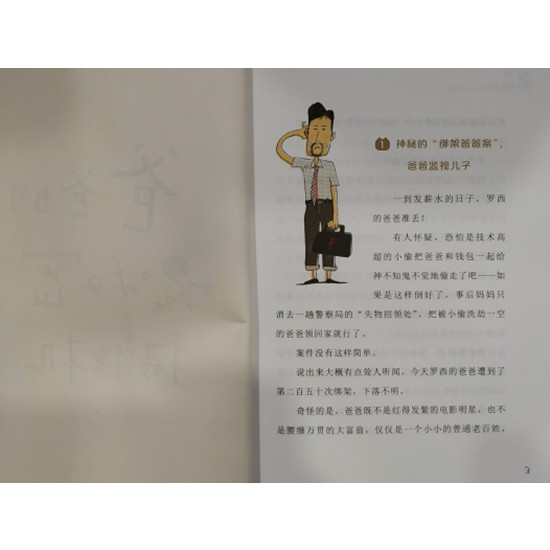 1 神秘的“绑架爸爸案”，
爸爸监视儿子
一到发薪水的日子，罗西
的爸爸准丢！
有人怀疑，恐怕是技术高
超的小偷把爸爸和钱包一起给
神不知鬼不觉地偷走了吧——如
果是这样倒好了，事后妈妈只
消去一趟警察局的“失物招领处”，把被小偷洗劫一空
的爸爸领回家就行了。
案件没有这样简单。
说出来大概有点耸人听闻，今天罗西的爸爸遭到了
第二百五十次绑架，下落不明。
奇怪的是，爸爸既不是红得发紫的电影明星，也不
是腰缠万贯的大富翁，仅仅是一个小小的普通老百姓，